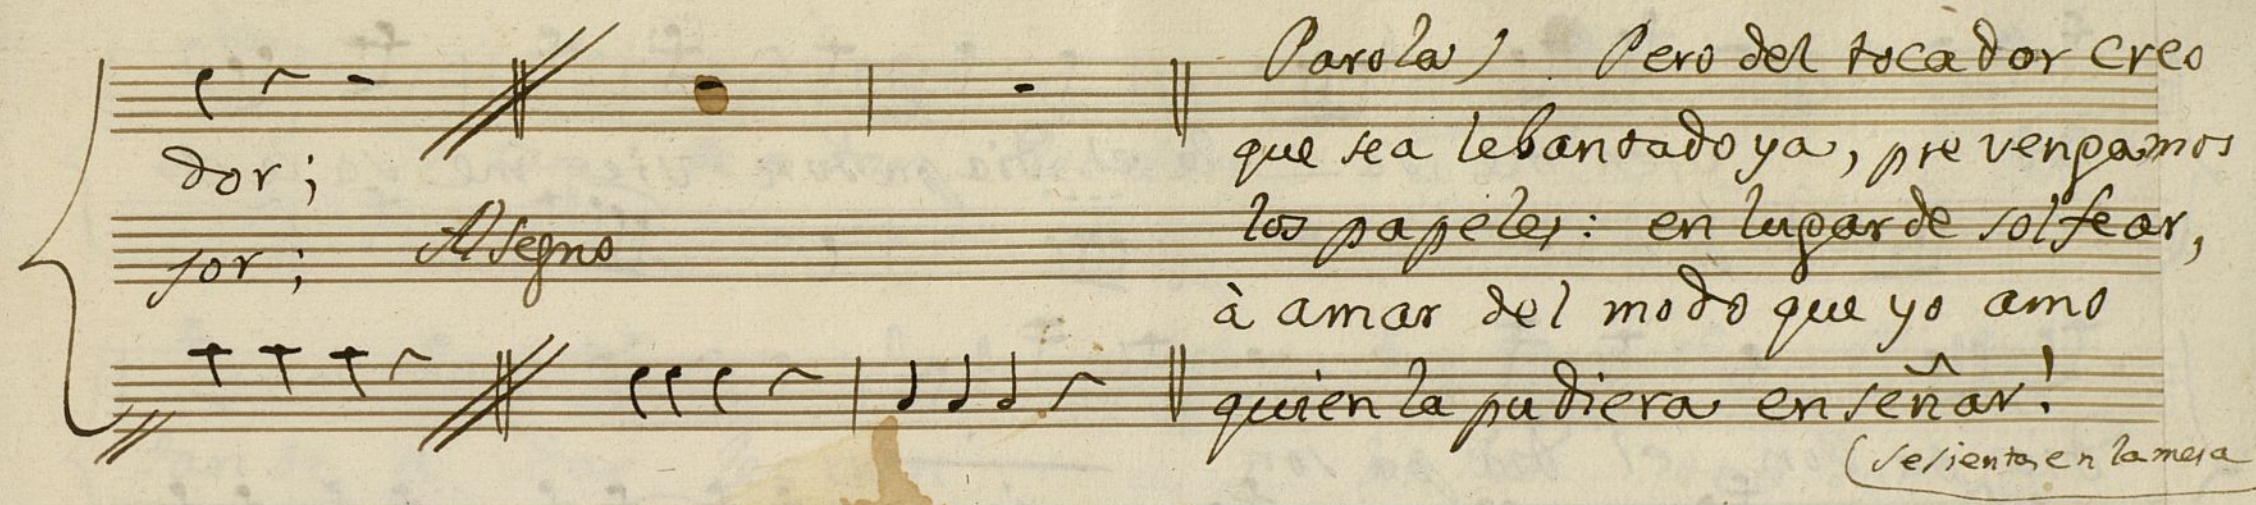 Parola) Pero del tocador creo
que sea lebantado ya, prevengamos
dor;
los papeles: en lugar de solfear,
Al Segno
sor;
à amar del modo que yo amo
quien la pudiera enseñar!
(se sienta en la mesa